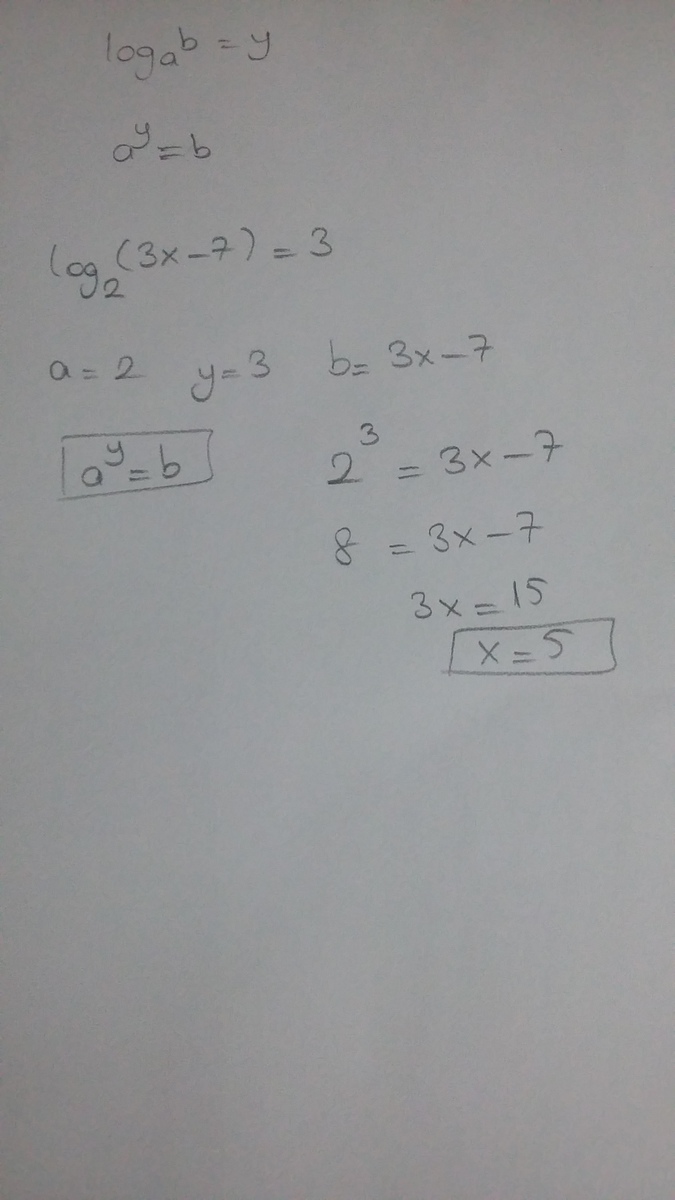 logₐb = y
aʸ = b
log₂(3x-7) = 3
a = 2 y = 3 b = 3x-7
aʸ = b 2³ = 3x-7
8 = 3x-7
3x = 15
x = 5